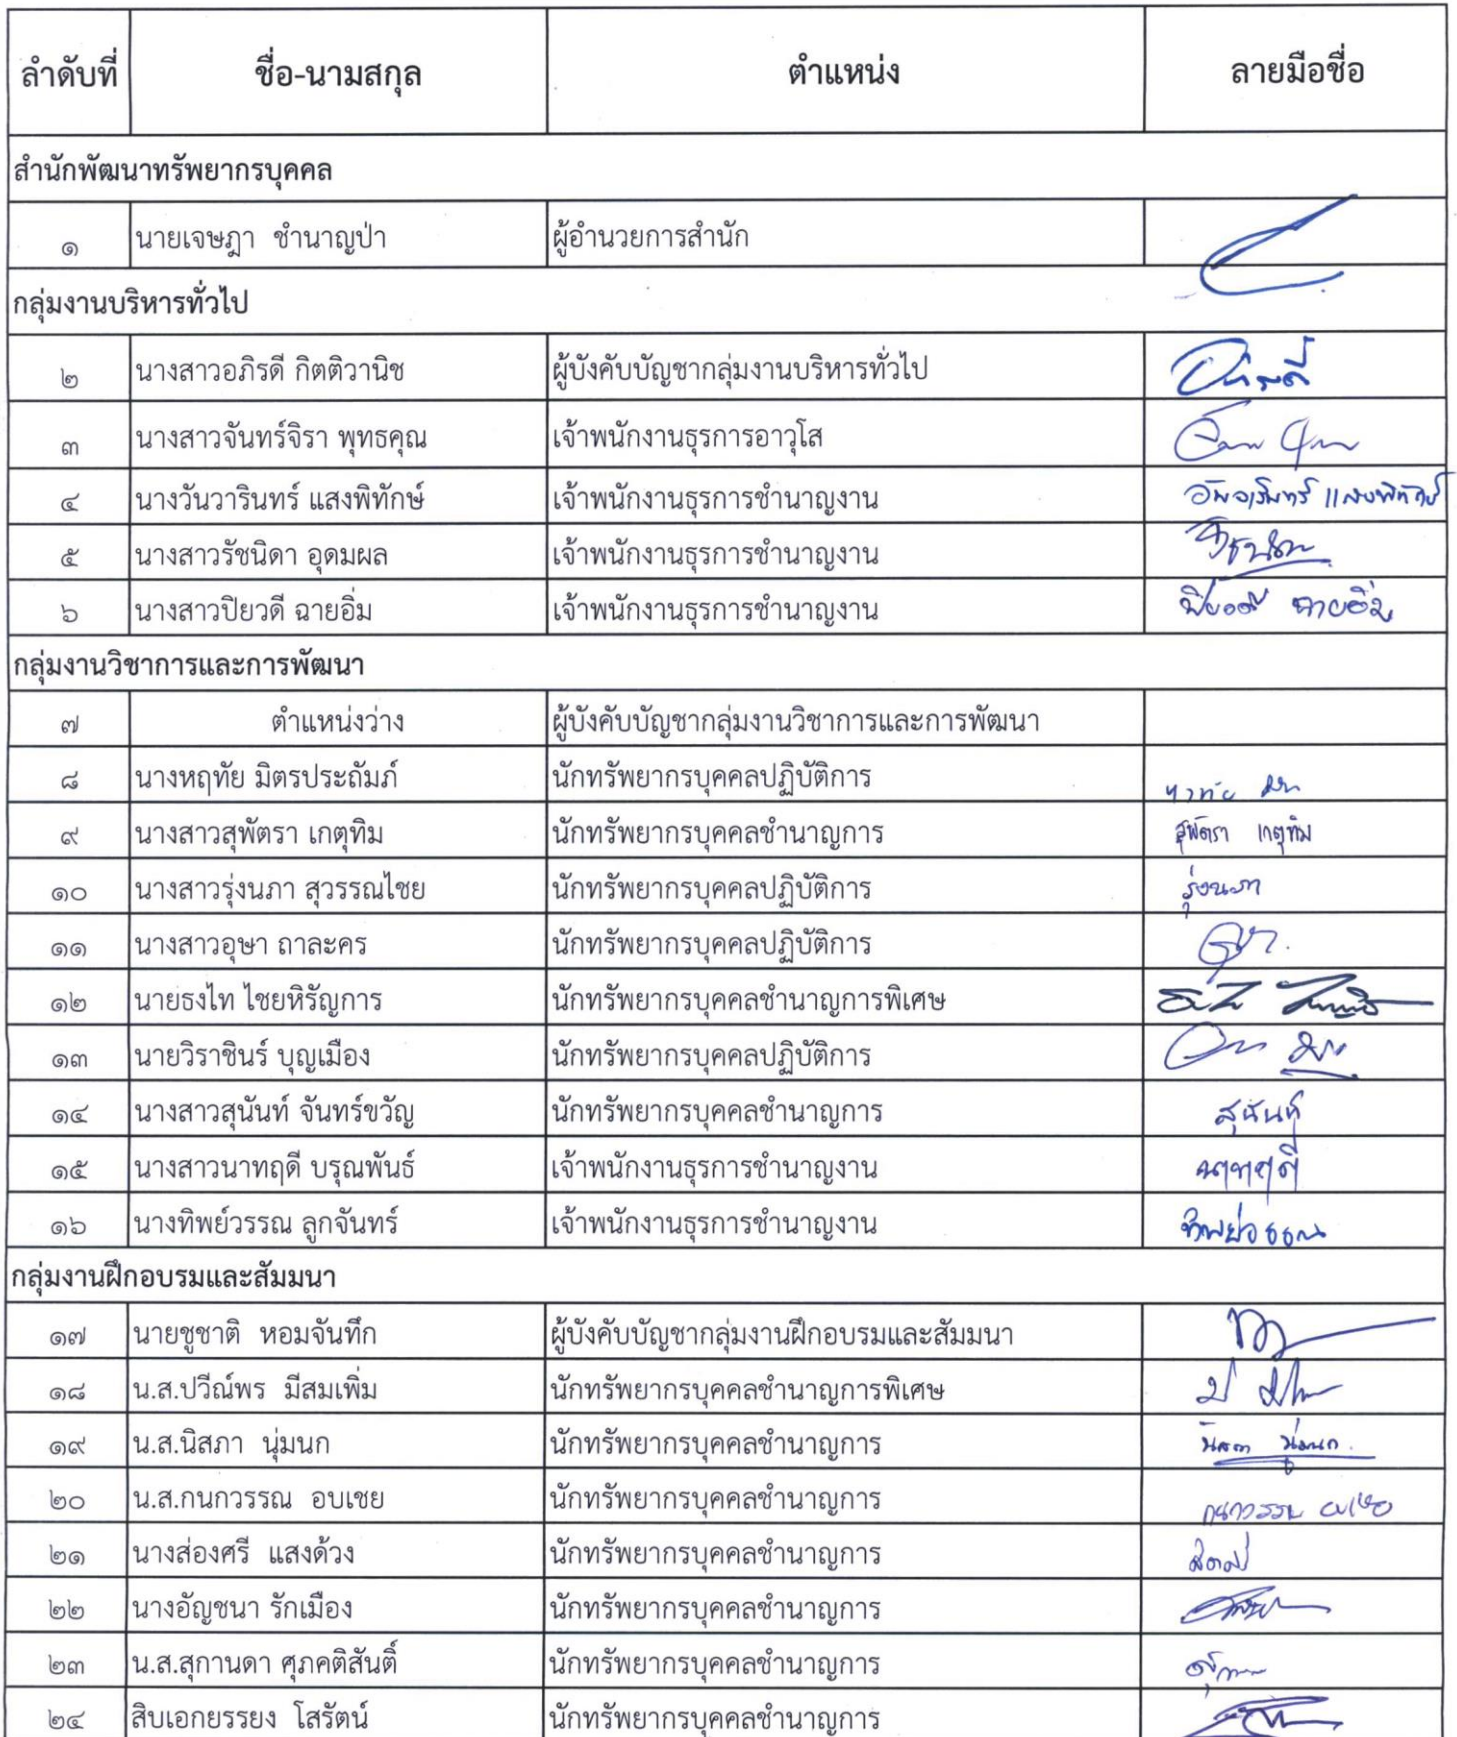 ลำดับที่ ชื่อ-นามสกุล ตำแหน่ง ลายมือชื่อ
สำนักพัฒนาทรัพยากรบุคคล
๑ นายเจษฎา ชำนาญป่า ผู้อำนวยการสำนัก
กลุ่มงานบริหารทั่วไป
๒ นางสาวอภิรดี กิตติวานิช ผู้บังคับบัญชากลุ่มงานบริหารทั่วไป
๓ นางสาวจันทร์จิรา พุทธคุณ เจ้าพนักงานธุรการอาวุโส
๔ นางวันวารินทร์ แสงพิทักษ์ เจ้าพนักงานธุรการชำนาญงาน
๕ นางสาวรัชนิดา อุดมผล เจ้าพนักงานธุรการชำนาญงาน
๖ นางสาวปิยวดี ฉายอิ่ม เจ้าพนักงานธุรการชำนาญงาน ปิยวดี ฉายอิ่ม
กลุ่มงานวิชาการและการพัฒนา
๗ ตำแหน่งว่าง ผู้บังคับบัญชากลุ่มงานวิชาการและการพัฒนา
๘ นางหฤทัย มิตรประถัมภ์ นักทรัพยากรบุคคลปฏิบัติการ
๙ นางสาวสุพัตรา เกตุทิม นักทรัพยากรบุคคลชำนาญการ สุพัตรา เกตุทิม
๑๐ นางสาวรุ่งนภา สุวรรณไชย นักทรัพยากรบุคคลปฏิบัติการ รุ่งนภา
๑๑ นางสาวอุษา ถาละคร นักทรัพยากรบุคคลปฏิบัติการ
๑๒ นายธงไท ไชยหิรัญการ นักทรัพยากรบุคคลชำนาญการพิเศษ
๑๓ นายวิราชินร์ บุญเมือง นักทรัพยากรบุคคลปฏิบัติการ
๑๔ นางสาวสุนันท์ จันทร์ขวัญ นักทรัพยากรบุคคลชำนาญการ สุนันท์
๑๕ นางสาวนาทฤดี บรุณพันธ์ เจ้าพนักงานธุรการชำนาญงาน นาทฤดี
๑๖ นางทิพย์วรรณ ลูกจันทร์ เจ้าพนักงานธุรการชำนาญงาน ทิพย์วรรณ
กลุ่มงานฝึกอบรมและสัมมนา
๑๗ นายชูชาติ หอมจันทึก ผู้บังคับบัญชากลุ่มงานฝึกอบรมและสัมมนา
๑๘ น.ส.ปวีณ์พร มีสมเพิ่ม นักทรัพยากรบุคคลชำนาญการพิเศษ
๑๙ น.ส.นิสภา นุ่มนก นักทรัพยากรบุคคลชำนาญการ
๒๐ น.ส.กนกวรรณ อบเชย นักทรัพยากรบุคคลชำนาญการ กนกวรรณ อบเชย
๒๑ นางส่องศรี แสงด้วง นักทรัพยากรบุคคลชำนาญการ
๒๒ นางอัญชนา รักเมือง นักทรัพยากรบุคคลชำนาญการ
๒๓ น.ส.สุกานดา ศุภคติสันติ์ นักทรัพยากรบุคคลชำนาญการ
๒๔ สิบเอกยรรยง โสรัตน์ นักทรัพยากรบุคคลชำนาญการ